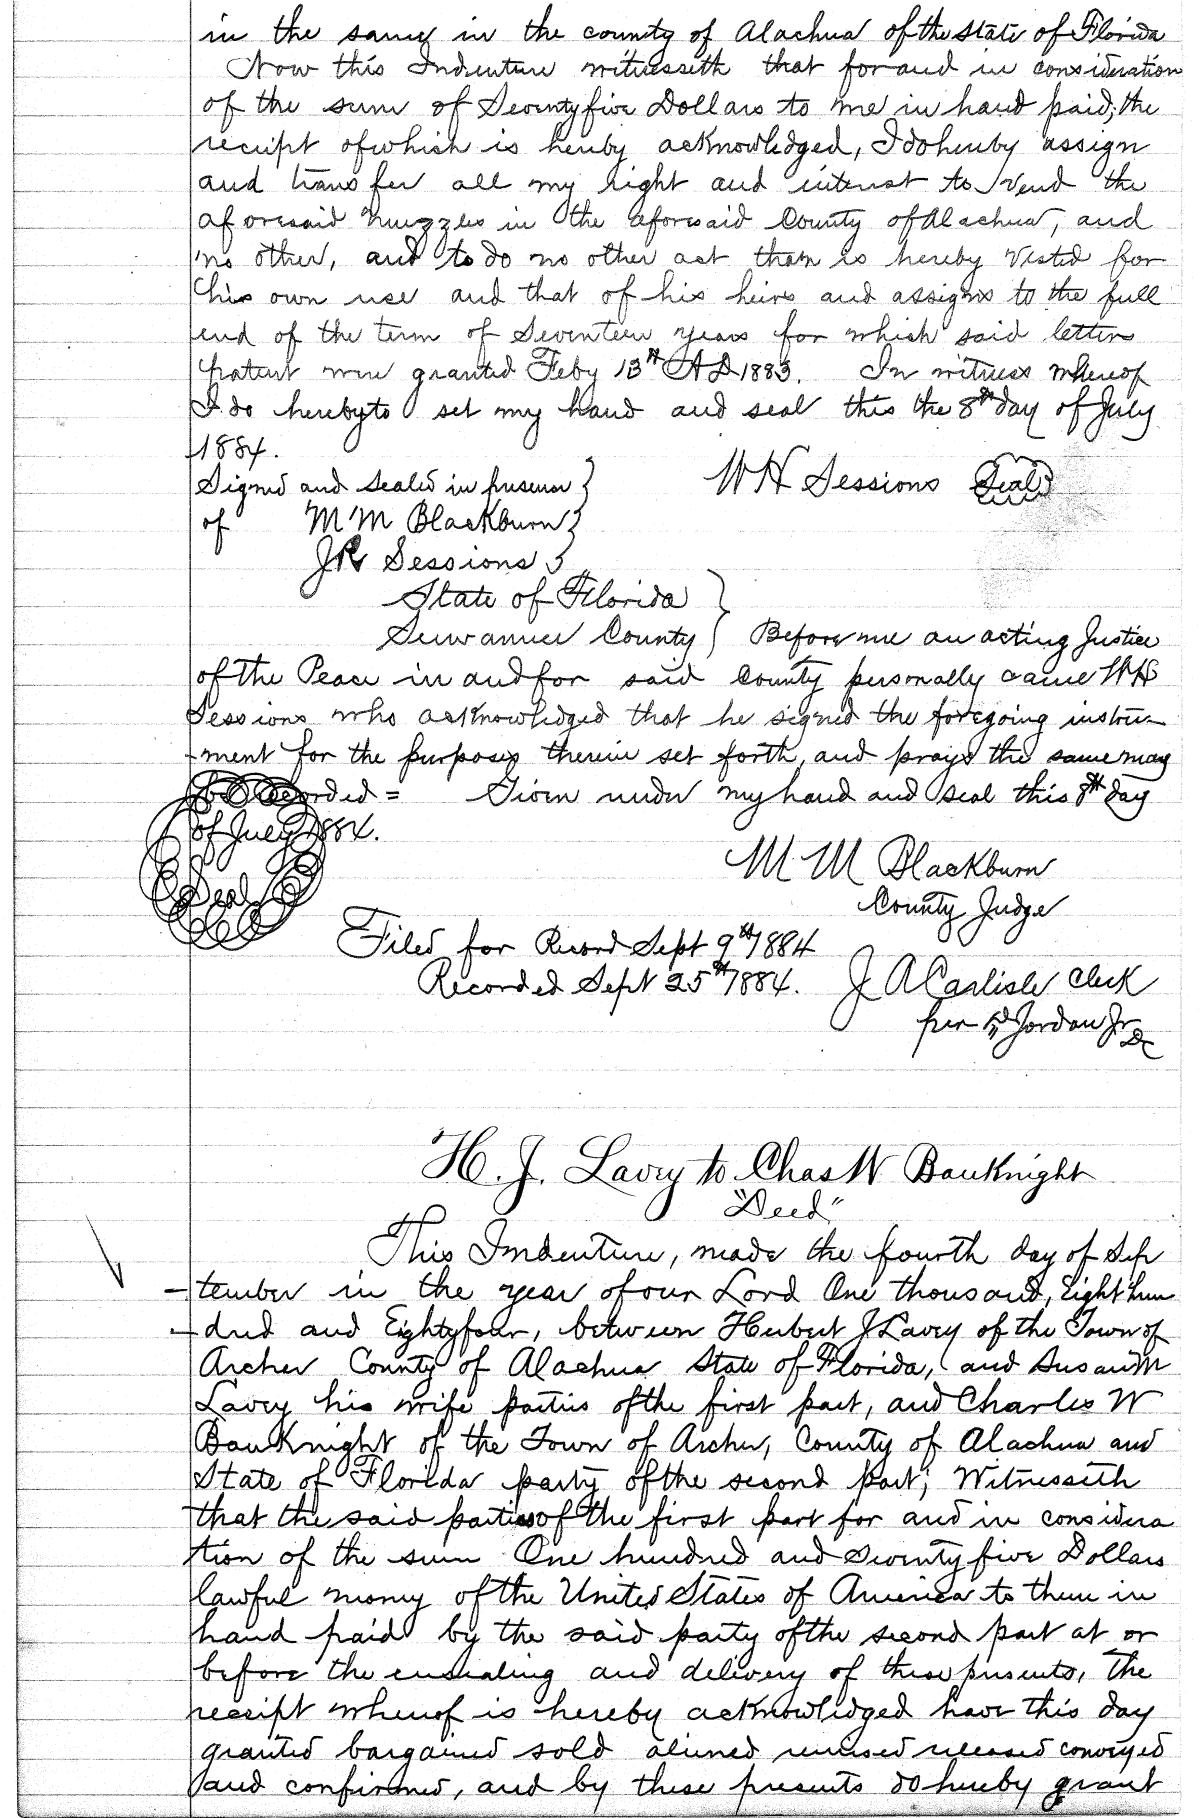 in the same in the county of Alachua of the state of Florida
Now this Indenture witnesseth that for and in consideration
of the sum of Seventyfive Dollars to me in hand paid, the
receipt of which is hereby acknowledged, I do hereby assign
and transfer all my right and interest to vend the
aforesaid Muzzles in the aforesaid County of Alachua, and
no other, and to do no other act than is hereby vested for
his own use and that of his heirs and assigns to the full
end of the term of Seventeen years for which said letters
patent were granted Feby 13th A D 1883. In witness whereof
I do hereby to set my hand and seal this the 8th day of July
1884.
Signed and sealed in presence } W H Sessions Seal
of M M Blackburn }
J R Sessions }
State of Florida }
Suwannee County } Before me an acting Justice
of the Peace in and for said County personally came W H
Sessions who acknowledged that he signed the foregoing instru-
-ment for the purposes therein set forth, and prays the same may
be recorded = Given under my hand and seal this 8th day
of July 1884.
Seal
M M Blackburn
County Judge
Filed for Record Sept 9th 1884
Recorded Sept 25th 1884. J A Carlisle Clerk
per Jordan Jr
DC
H. J. Lavey to Chas W Bauknight
"Deed"
This Indenture, made the fourth day of Sep
-tember in the year of our Lord One thousand, Eight hun
-dred and Eightyfour, between Herbert J Lavey of the Town of
Archer County of Alachua State of Florida, and Susan M
Lavey his wife parties of the first part, and Charles W
Bauknight of the Town of Archer, County of Alachua and
State of Florida party of the second part; Witnesseth
that the said parties of the first part for and in considera
tion of the sum One hundred and Seventy five Dollars
lawful money of the United States of America to them in
hand paid by the said party of the second part at or
before the ensealing and delivery of these presents, the
receipt whereof is hereby acknowledged have this day
granted bargained sold aliened remised released conveyed
and confirmed, and by these presents do hereby grant